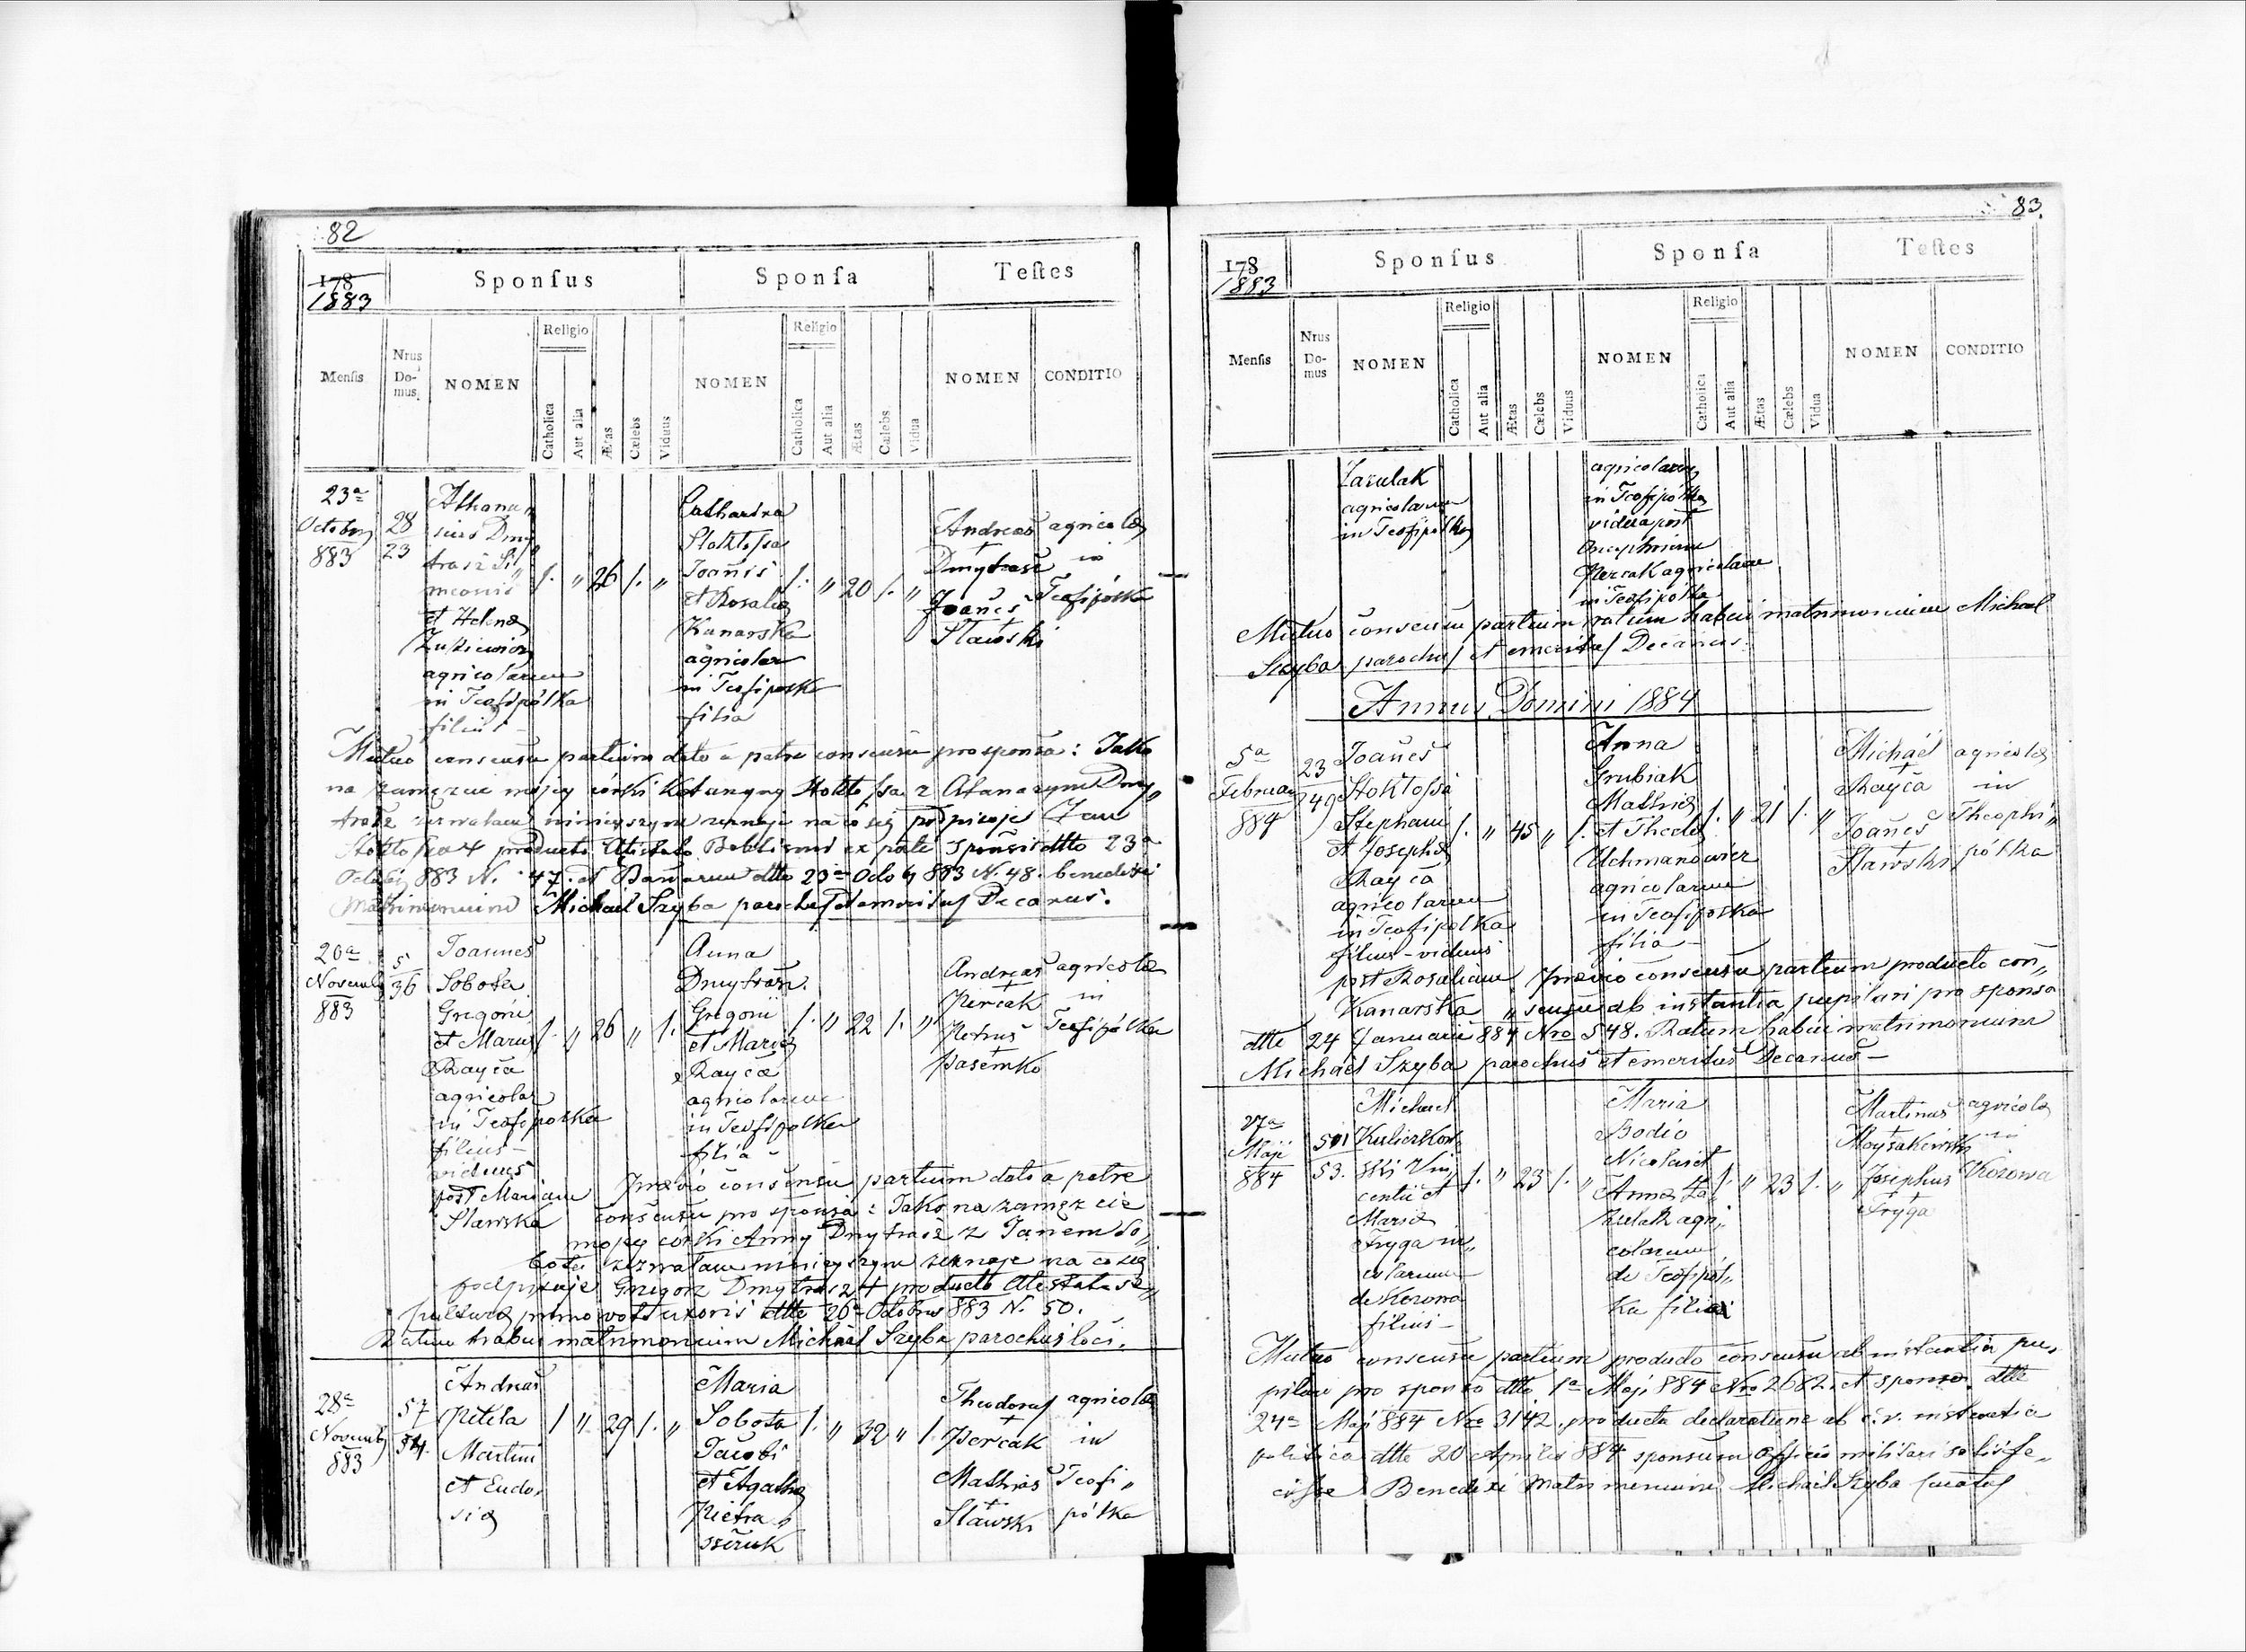 82
178
1883
Sponsus
Sponsa
Testes
Mensis
Nrus Domus
NOMEN
Religio
Catholica
Aut alia
Ætas
Cælebs
Viduus
NOMEN
Religio
Catholica
Aut alia
Ætas
Cælebs
Vidua
NOMEN
CONDITIO
23a
Octobr
883
28
23
Athana„
sius Dmy„
trasz Si„
meonis
et Helenæ
agricolarum
in Teofipólka
filius
1. „ 26 1. „
Catharina
Stoktossa
Joannis
et Rosaliæ
Kanarska
agricolar
in Teofipolka
filia
1. „ 20 1. „
Andreas
Dmytrasz
+
Joannes
Sławski
+
agricolæ
in
Teofipolka
Mutuo consensu partium dato a patre consensu pro sponsa: Jako
na zamęzcie mojey córki Katarzyny Stoktossa z Atanazym Dmy„
trasz zezwalam niniejszym zeznaję na co się podpisuję Jan
Stoktossa + producto Baptismi ex parte sponsi dtto 23a
Octobr 883 N. 47. et Bannorum dtto 23a Octobr 883 N. 48. benedixi
Matrimonium Michael Szyba parochus et emeritus Decanus.
20a
Novemb
883
5
36
Joannes
Sobota
Gregorii
et Mariæ
Rayca
agricolar
in Teofipolka
filius
viduus
post Mariam
Sławska
1. „ 26 „ 1.
Anna
Dmytrasz
Gregorii
et Mariæ
Rayca
agricolarum
in Teofipolka
filia
1. „ 22 1. „
Andreas
Percak
+
Petrus
Pasemko
+
agricolæ
in
Teofipólka
Prævio consensu partium dato a patre
consensu pro sponsa: Jako na zamęzcie
mojey córki Anny Dmytrasz z Janem So„
bota zezwalam niniejszym zeznaję na co się
podpisuję Grzegorz Dmytrasz + producto Attestato se„
pulturæ primo voto uxoris dtto 26a Octobris 883 N. 50.
Ratum habui matrimonium Michael Szyba parochus loci.
28a
Novemb
883
57
54.
Andreas
Petela
Martini
et Eudo„
xiæ
1 „ 29 1. „
Maria
Sobota
Jacobi
et Agathæ
Pietra„
szczuk
1. „ 32 „ 1.
Theodorus
Percak
+
Mathias
Sławski
+
agricolæ
in
Teofi„
pólka
83.
178
1883
Sponsus
Sponsa
Testes
Mensis
Nrus Domus
NOMEN
Religio
Catholica
Aut alia
Ætas
Cælebs
Viduus
NOMEN
Religio
Catholica
Aut alia
Ætas
Cælebs
Vidua
NOMEN
CONDITIO
Zarulak
agricolarum
in Teofipólka
agricolarum
in Teofipólka
vidua post
Onuphrium
Percak agricolam
in Teofipolka
Mutuo consensu partium ratum habui matrimonium Michael
Szyba parochus et emeritus Decanus.
Annus Domini 1884
5a
Februar
884
23
249
Joannes
Stoktossa
Stephani
et Josephæ
Rayca
agricolarum
in Teofipolka
filius - viduus
post Rosaliam
Kanarska
1. „ 45 „ 1.
Anna
Grubiak
Mathiæ
et Theclæ
Uchmanowicz
agricolarum
in Teofipolka
filia
1. „ 21 1. „
Michael
Rayca
+
Joannes
Sławski
+
agricolæ
in
Theophi„
pólka
Prævio consensu partium producto con„
„sensu ab instantia pupilari pro sponsa
dtto 24 Januarii 884 Nro 548. Ratum habui matrimonium
Michael Szyba parochus et emeritus Decanus
27a
Maji
884
501
53.
Michael
Kulczkow„
ski Vin„
centii et
Mariæ
Fryga in„
colarum
de Kozowa
filius
1. „ 23 1. „
Maria
Bodio
Nicolai et
Annæ Za„
rulak agri„
colarum
de Teofipol„
ka filia
1. „ 23 1. „
Martinus
Moysakowski
+
Josephus
Fryga
+
agricolæ
in
Kozowa
Mutuo consensu partium producto consensu ab instantia pu„
pilari pro sponso dtto 1a Maji 884 Nro 2682. et sponsæ dtto
24a Maji 884 Nro 3142. producta declaratione ab c. r. instantia
politica dtto 20 Aprilis 884 sponsum officio militari satisfe„
cisse Benedixi Matrimonium Michael Szyba